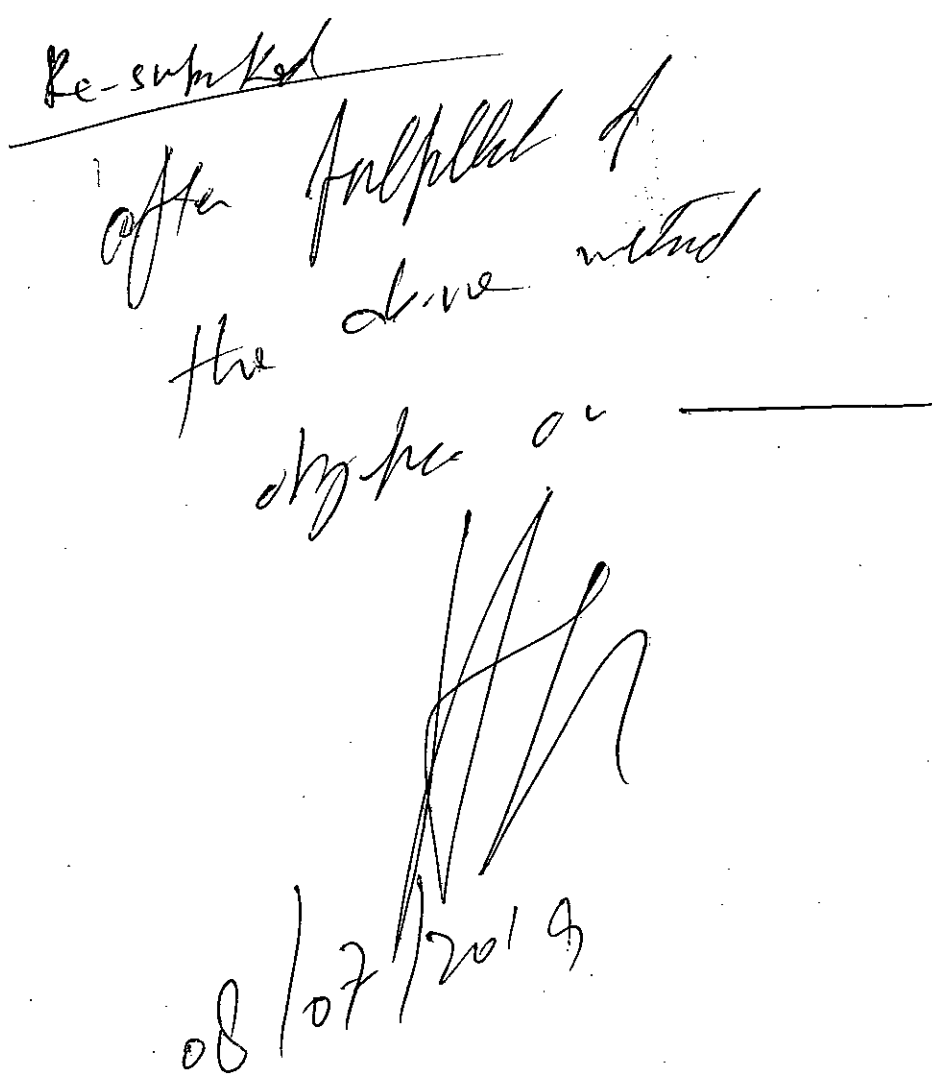 Re-submitted
after fulfilled of
the above
objection on
08/07/2019